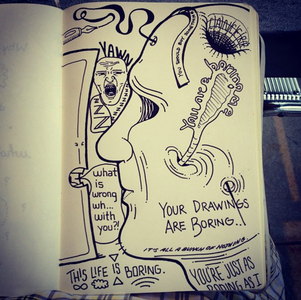 YAWN
You are a
what
is
wrong
wh...
with
you?!
YOUR DRAWINGS
ARE BORING...
IT'S ALL A BUNCH OF NOTHING
THIS LIFE IS BORING.
YOU'RE JUST AS
BORING AS I